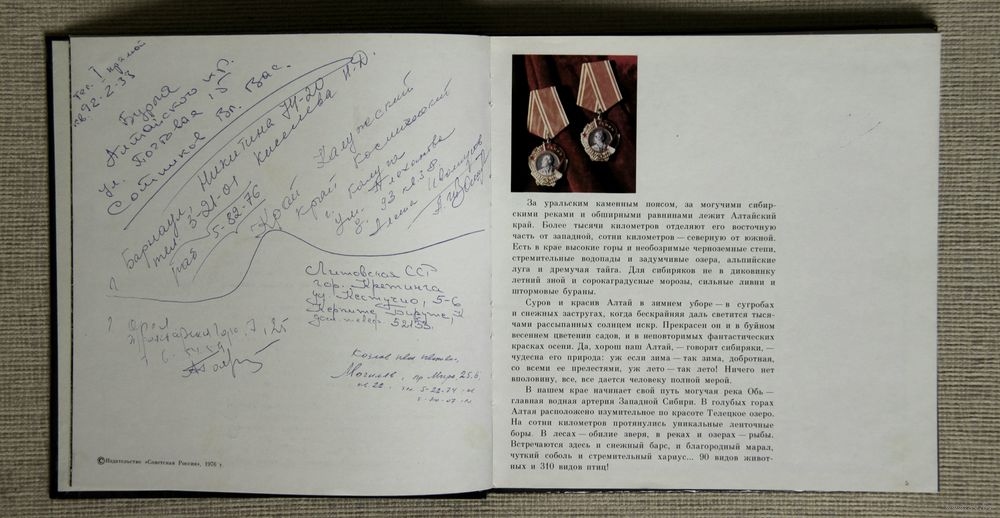 Тел. I прямой
кв. 92-2-33
Бурла
Алтайского кр.
ул. Почтовая 15
Сотников Вл. Вас.
Барнаул Никитина 74-20
тел 3-21-01 Киселева Н.Д.
раб 5-82-76
Край Калужский
край космический
г. Калуга
ул. Плеханова
Литовская ССР
гор. Кретинга
5-6
Могилев, пр. Мира, 25,6,
©Издательство «Советская Россия», 1976 г.
За уральским каменным поясом, за могучими сибир-
скими реками и обширными равнинами лежит Алтайский
край. Более тысячи километров отделяют его восточную
часть от западной, сотни километров — северную от южной.
Есть в крае высокие горы и необозримые черноземные степи,
стремительные водопады и задумчивые озера, альпийские
луга и дремучая тайга. Для сибиряков не в диковинку
летний зной и сорокаградусные морозы, сильные ливни и
штормовые бураны.
Суров и красив Алтай в зимнем уборе — в сугробах
и снежных застругах, когда бескрайняя даль светится тыся-
чами рассыпанных солнцем искр. Прекрасен он и в буйном
весеннем цветении садов, и в неповторимых фантастических
красках осени. Да, хорош наш Алтай, — говорят сибиряки, —
чудесна его природа: уж если зима — так зима, добротная,
со всеми ее прелестями, уж лето — так лето! Ничего нет
вполовину, все, все дается человеку полной мерой.
В нашем крае начинает свой путь могучая река Обь —
главная водная артерия Западной Сибири. В голубых горах
Алтая расположено изумительное по красоте Телецкое озеро.
На сотни километров протянулись уникальные ленточные
боры. В лесах — обилие зверя, в реках и озерах — рыбы.
Встречаются здесь и снежный барс, и благородный марал,
чуткий соболь и стремительный хариус... 90 видов живот-
ных и 310 видов птиц!